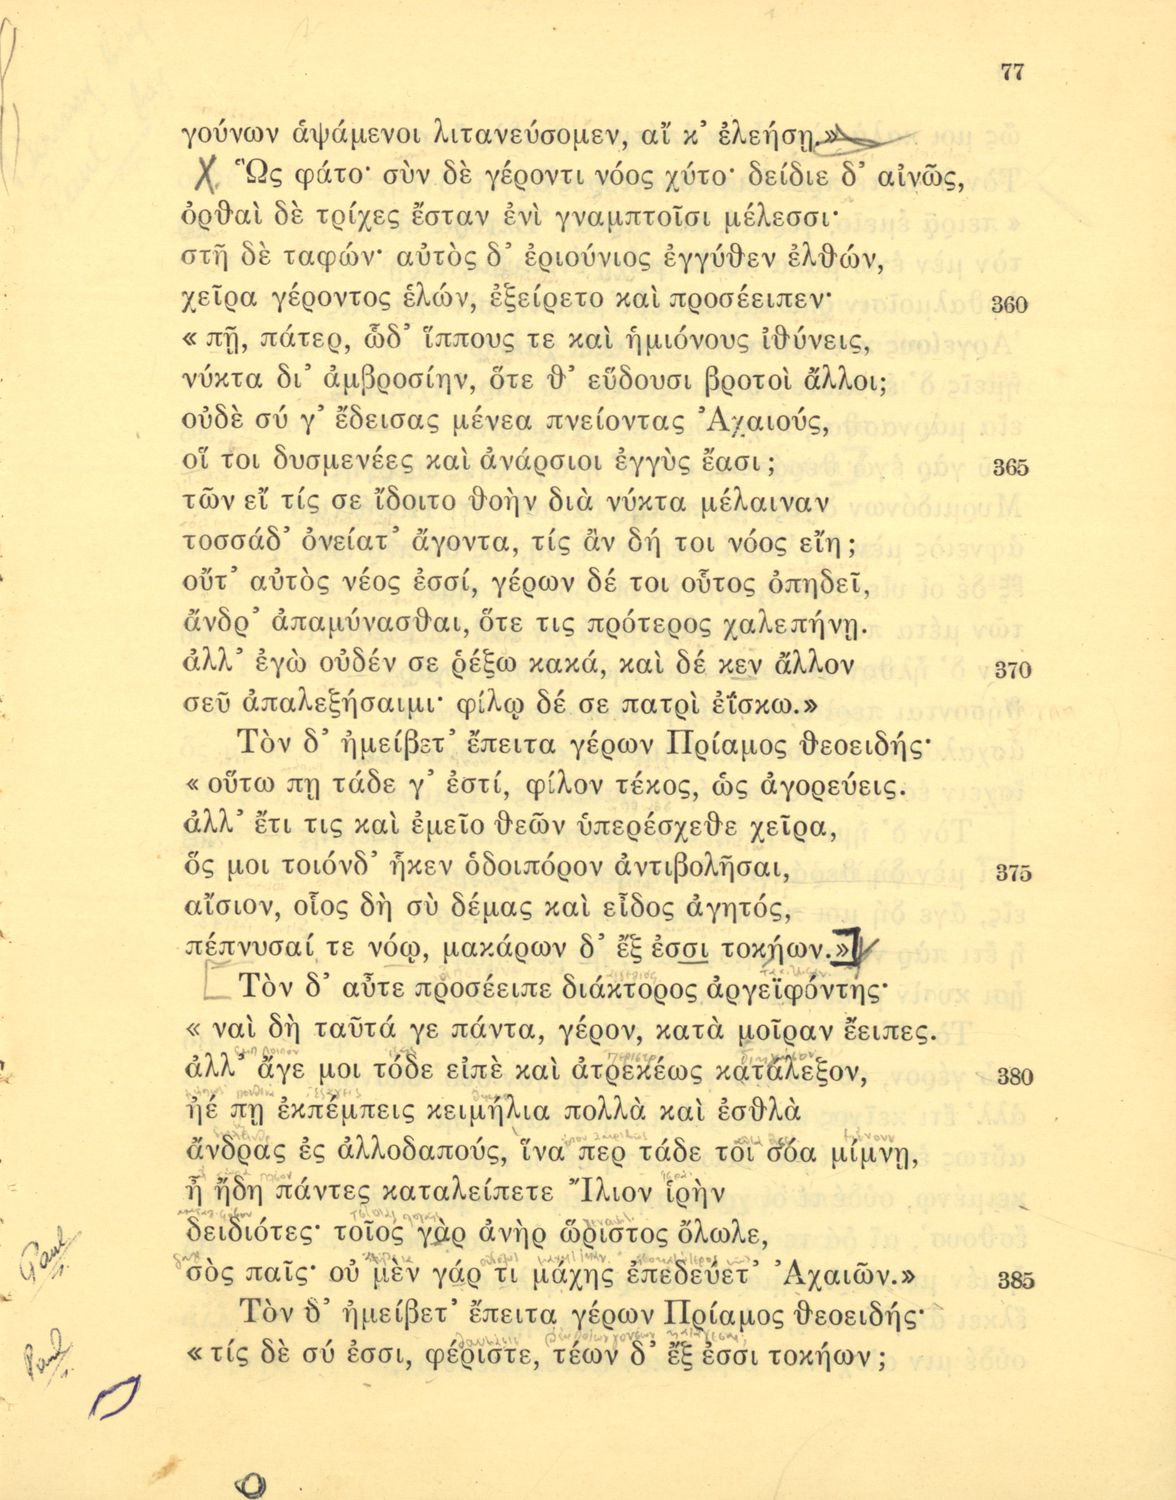 77
γούνων ἁψάμενοι λιτανεύσομεν, αἴ κ’ ἐλεήσῃ.»
Ὣς φάτο· σὺν δὲ γέροντι νόος χύτο· δείδιε δ’ αἰνῶς,
ὀρθαὶ δὲ τρίχες ἔσταν ἐνὶ γναμπτοῖσι μέλεσσι·
στῆ δὲ ταφών· αὐτὸς δ’ ἐριούνιος ἐγγύθεν ἐλθών,
χεῖρα γέροντος ἑλών, ἐξείρετο καὶ προσέειπεν· 360
« πῇ, πάτερ, ὧδ’ ἵππους τε καὶ ἡμιόνους ἰθύνεις,
νύκτα δι’ ἀμβροσίην, ὅτε θ’ εὕδουσι βροτοὶ ἄλλοι;
οὐδὲ σύ γ’ ἔδεισας μένεα πνείοντας Ἀχαιούς,
οἵ τοι δυσμενέες καὶ ἀνάρσιοι ἐγγὺς ἔασι; 365
τῶν εἴ τίς σε ἴδοιτο θοὴν διὰ νύκτα μέλαιναν
τοσσάδ’ ὀνείατ’ ἄγοντα, τίς ἂν δή τοι νόος εἴη;
οὔτ’ αὐτὸς νέος ἐσσί, γέρων δέ τοι οὗτος ὀπηδεῖ,
ἄνδρ’ ἀπαμύνασθαι, ὅτε τις πρότερος χαλεπήνῃ.
ἀλλ’ ἐγὼ οὐδέν σε ῥέξω κακά, καὶ δέ κεν ἄλλον 370
σεῦ ἀπαλεξήσαιμι· φίλῳ δέ σε πατρὶ ἐΐσκω.»
Τὸν δ’ ἠμείβετ’ ἔπειτα γέρων Πρίαμος θεοειδής·
« οὕτω πῃ τάδε γ’ ἐστί, φίλον τέκος, ὡς ἀγορεύεις.
ἀλλ’ ἔτι τις καὶ ἐμεῖο θεῶν ὑπερέσχεθε χεῖρα,
ὅς μοι τοιόνδ’ ἧκεν ὁδοιπόρον ἀντιβολῆσαι, 375
αἴσιον, οἷος δὴ σὺ δέμας καὶ εἶδος ἀγητός,
πέπνυσαί τε νόῳ, μακάρων δ’ ἔξ ἐσσι τοκήων.»
Τὸν δ’ αὖτε προσέειπε διάκτορος ἀργεϊφόντης·
« ναὶ δὴ ταῦτά γε πάντα, γέρον, κατὰ μοῖραν ἔειπες.
ἀλλ’ ἄγε μοι τόδε εἰπὲ καὶ ἀτρεκέως κατάλεξον, 380
ἠέ πῃ ἐκπέμπεις κειμήλια πολλὰ καὶ ἐσθλὰ
ἄνδρας ἐς ἀλλοδαπούς, ἵνα περ τάδε τοι σόα μίμνῃ,
ἦ ἤδη πάντες καταλείπετε Ἴλιον ἱρὴν
δειδιότες· τοῖος γὰρ ἀνὴρ ὥριστος ὄλωλε,
Paul
σὸς παῖς· οὐ μὲν γάρ τι μάχης ἐπεδεύετ’ Ἀχαιῶν.» 385
Τὸν δ’ ἠμείβετ’ ἔπειτα γέρων Πρίαμος θεοειδής·
Paul
« τίς δὲ σύ ἐσσι, φέριστε, τέων δ’ ἔξ ἐσσι τοκήων;